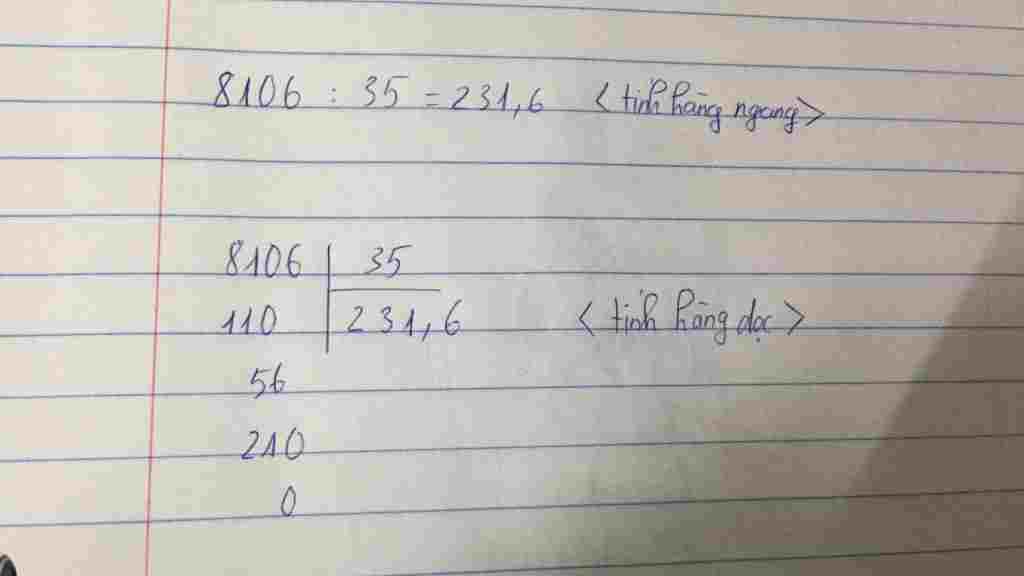 8106 : 35 = 231,6 <tính hàng ngang>
8106 35
110 231,6 <tính hàng dọc>
56
210
0